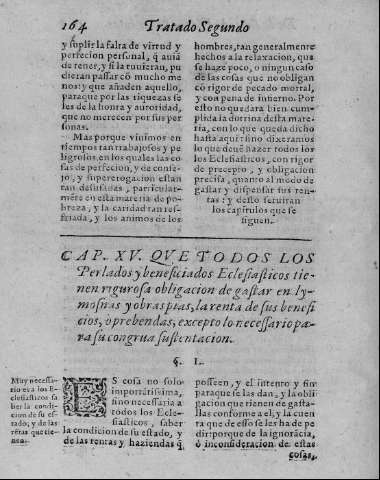 164 Tratado Segundo
y suplir la falta de virtud y
perfecion personal, q̃ auiã
de tener, y si la tuuieran, pu
dieran passar cõ mucho me
nos: y que añaden aquello,
paraque por las riquezas se
les de la honra y autoridad,
que no merecen por sus per
sonas.
Mas porque viuimos en
tiempos tan trabajosos y pe
ligrosos, en los quales las co
sas de perfecion, y de conse-
jo, y supererogacion estàn
tan desusadas, particular-
mẽte en esta materia de po-
breza, y la caridad tan res-
friada, y los animos de los
hombres, tan generalmente
hechos a la relaxacion, que
se haze poco, o ningun caso
de las cosas que no obligan
cõ rigor de pecado mortal,
y con pena de infierno. Por
esto no quedara bien cum-
plida la dotrina desta mate-
ria, con lo que queda dicho
hasta aqui: sino dixeramos
lo que deuẽ hazer todos los
los Eclesiasticos, con rigor
de precepto, y obligacion
precisa, quanto al modo de
gastar y dispensar sus ren-
tas: y desto seruiran
los capitulos que se
siguen.
CAP. XV. QUE TODOS LOS
Perlados y beneficiados Eclesiasticos tie-
nen rigurosa obligacion de gastar en ly-
mosnas y obras pias, la renta de sus benefi
cios, o prebendas, excepto lo necessario pa-
ra su congrua sustentacion.
§. I.
Muy necessa-
rio era a los E-
clesiasticos sa
ber la condi-
cion de su es-
tado, y de las
rẽtas que tie-
nen.
ES cosa no solo
importãtissima,
sino necessaria a
todos los Ecle-
siasticos, saber
la condicion de su estado, y
de las rentas y haziendas q̃
posseen, y el intento y fin
paraque se las dan, y la obli
gacion que tienen de gasta-
llas conforme a el; y la cuen
ta que de esso se les ha de pe
dir: porque de la ignorãcia,
ò inconsideracion de estas
cosas,